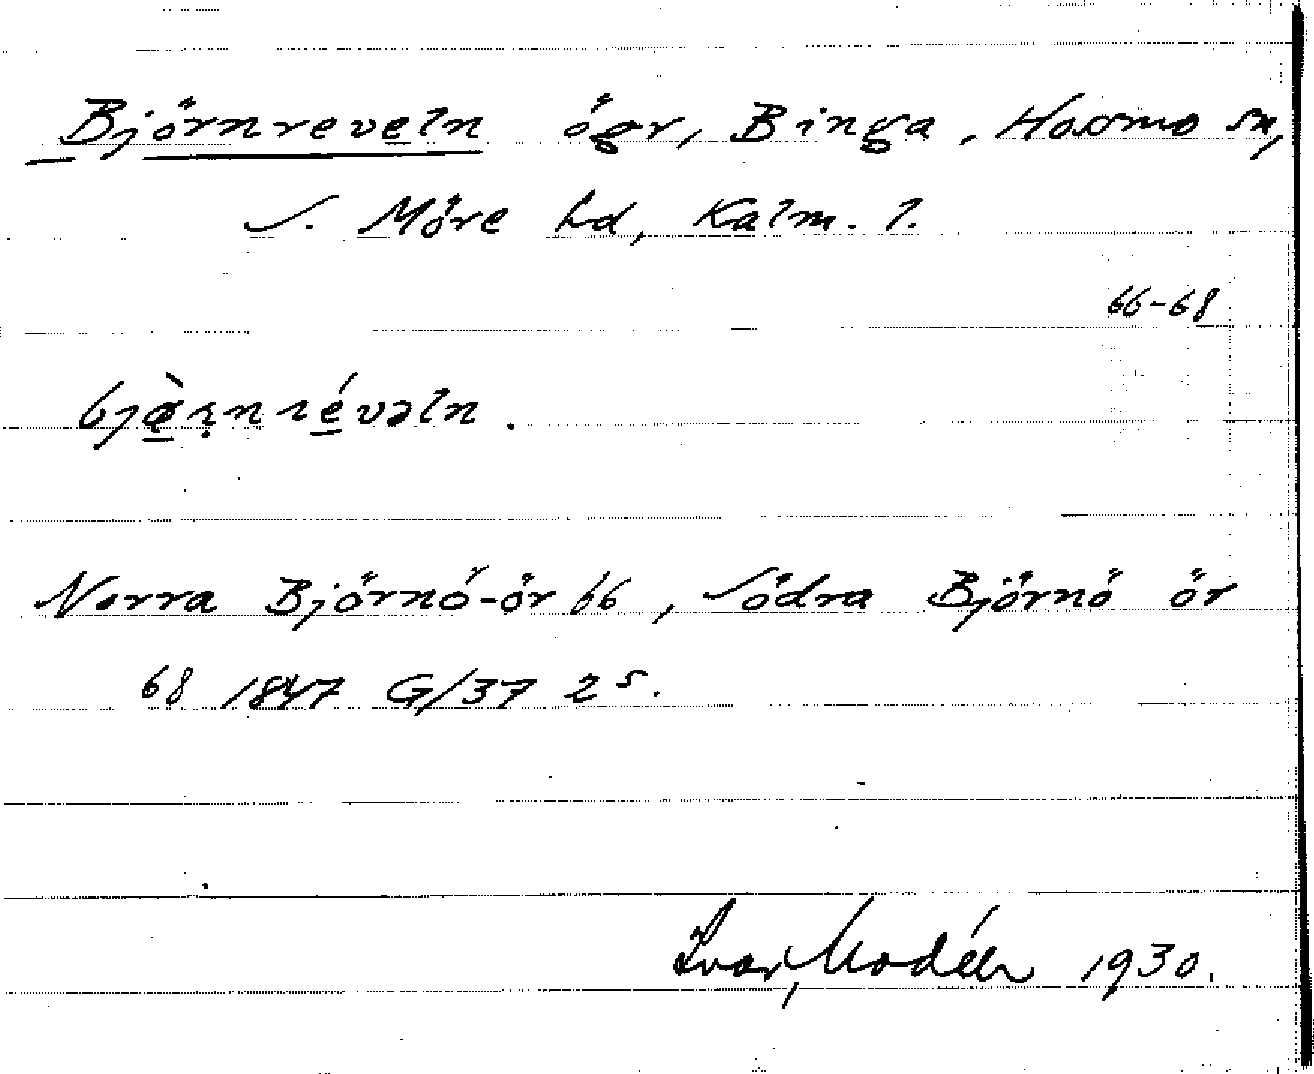 Björnreveln ögr, Binga, Hossmo sn,
S. Möre hd, Kalm. l.
66-68
bjæ̀rnrévəln.
Norra Björnö-ör 66, Södra Björnö ör
68 1847 G/37 25.
Ivar Modéer 1930.